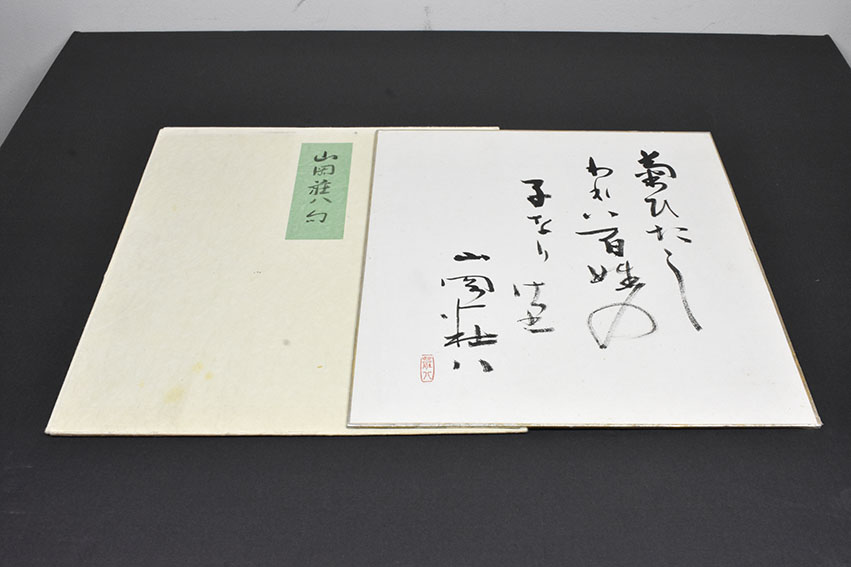 山岡莊八句
菊ひたし
われハ百姓の
子なり
山岡荘八